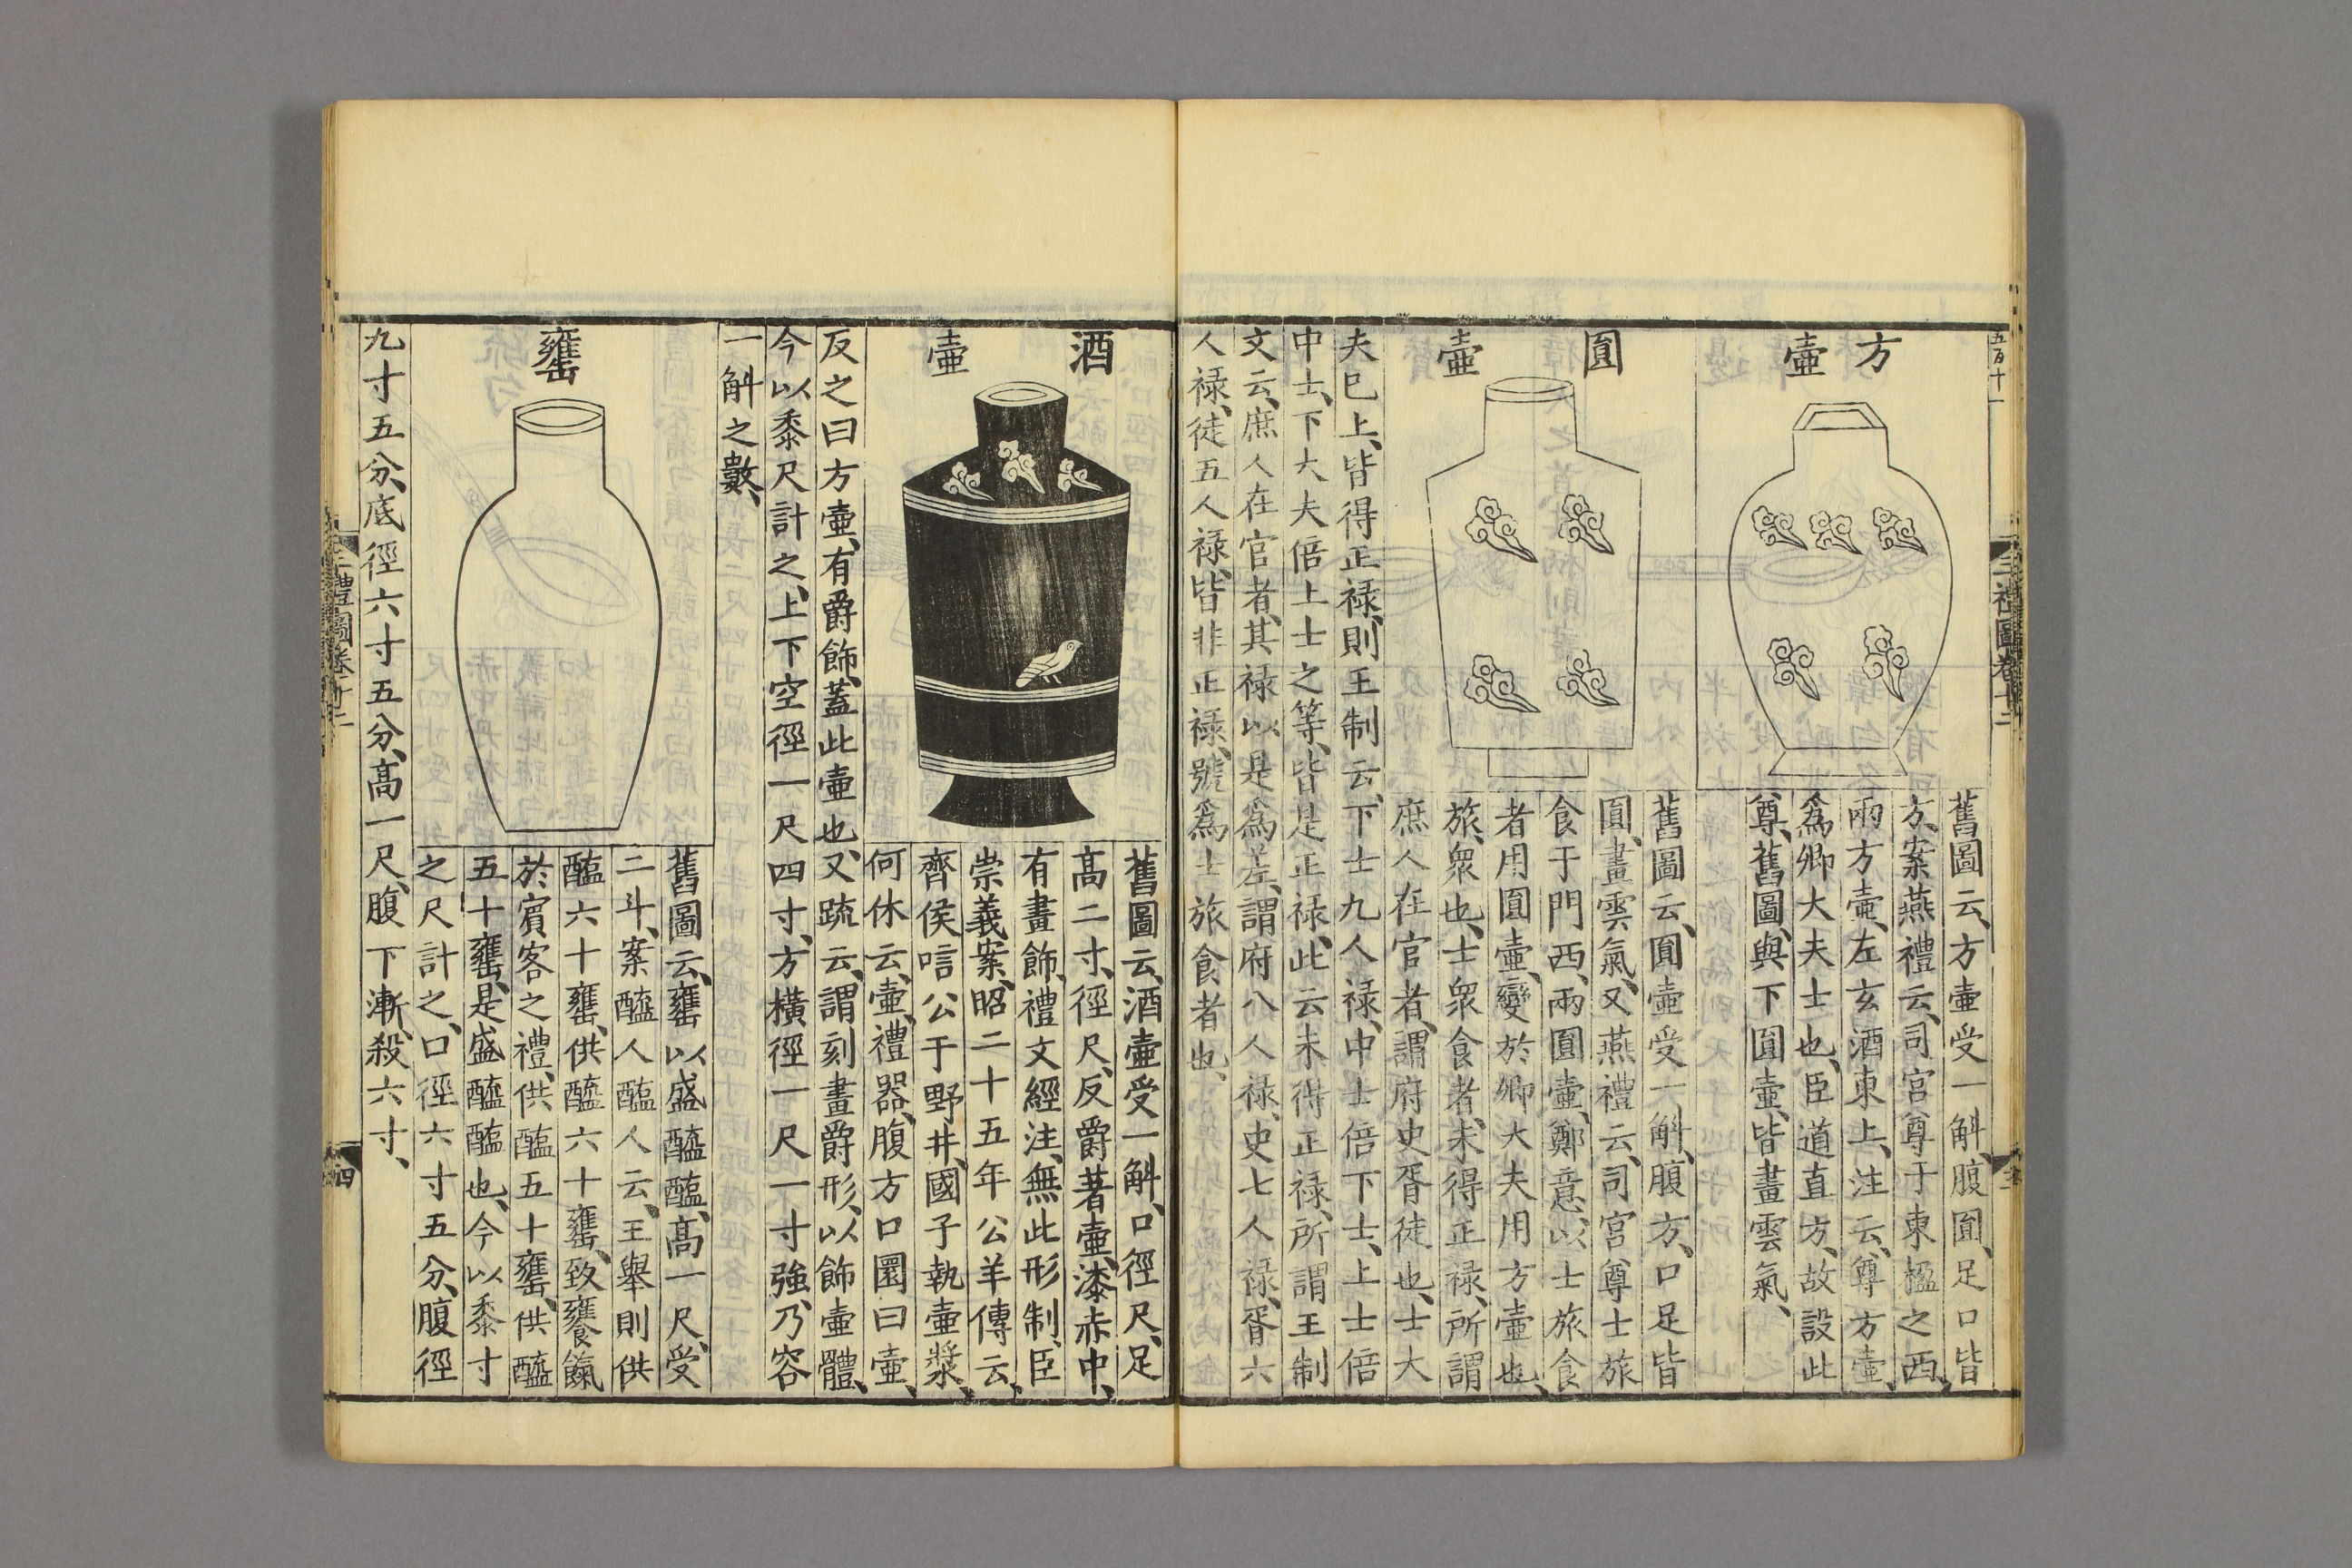 五百十一
三禮圖卷十二
方壺
舊圖云、方壺受一斛、腹圓、足口皆
方、案燕禮云、司宮尊于東楹之西、
兩方壺、左玄酒東上、注云、尊方壺、
為卿大夫士也、臣道直方、故設此
尊、舊圖、與下圓壺、皆畫雲氣、
圓壺
舊圖云、圓壺受一斛、腹方、口足皆
圓、畫雲氣、又燕禮云、司宮尊士旅
食于門西、兩圓壺、鄭意、以士旅食
者用圓壺、變於卿大夫用方壺也、
旅、眾也、士眾食者、未得正祿、所謂
庶人在官者、謂府史胥徒也、士大
夫已上、皆得正祿、則王制云、下士九人祿、中士倍下士、上士倍
中士、下大夫倍上士之等、皆是正祿、此云未得正祿、所謂王制
文云、庶人在官者、其祿以是為差、謂府八人祿、史七人祿、胥六
人祿、徒五人祿、皆非正祿、號為士旅食者也、
酒壺
舊圖云、酒壺受一斛、口徑尺、足
高二寸、徑尺、反爵著壺、漆赤中、
有畫飾、禮文經注、無此形制、臣
崇義案、昭二十五年公羊傳云、
齊侯唁公于野井、國子執壺漿、
何休云、壺、禮器、腹方口圓曰壺、
反之曰方壺、有爵飾、蓋此壺也、又疏云、謂刻畫爵形、以飾壺體、
今以黍尺計之、上下空徑一尺四寸、方橫徑一尺一寸強、乃容
一斛之數、
罋
舊圖云、罋以盛醯醢、高一尺、受
二斗、案醯人醢人云、王舉則供
醢六十罋、供醯六十罋、致饔餼
於賓客之禮、供醢五十罋、供醯
五十罋、是盛醯醢也、今以黍寸
之尺計之、口徑六寸五分、腹徑
九寸五分、底徑六寸五分、高一尺、腹下漸殺六寸、
三禮圖卷十二
四